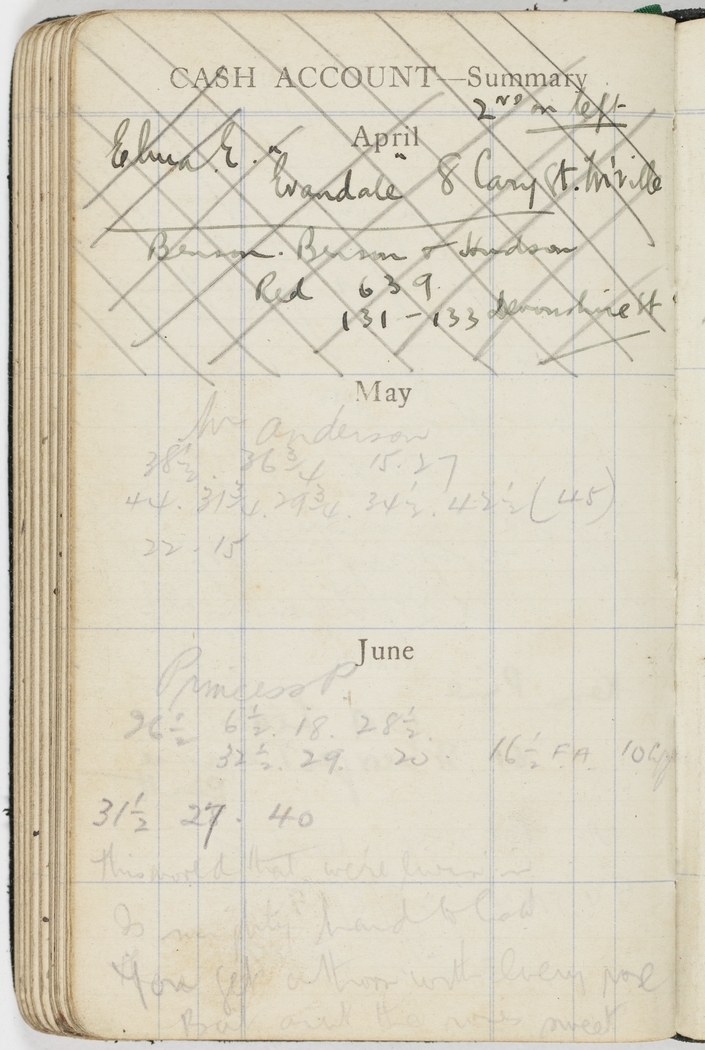 CASH ACCOUNT—Summary
2nd on left
April
Elma E. "Evandale" 8 Cary St. M'ville
Benson. Benson & Hudson
Red 639
131 - 133 Devonshire St
May
Mr Anderson
38½. 36¾ 15.27
44. 31¾. 29¾. 34½. 42½ (45)
22. 15
June
Princess P
26½ 6½. 18. 28½.
32½. 29. 20. 16½ F.A. 10
31½ 27. 40
this world that we're livin in
Is mighty hard to beat
You get a thorn with every rose
But aint the roses sweet